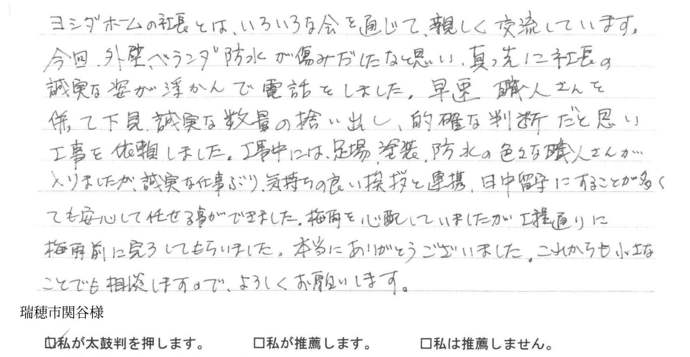 ヨシダホームの社長とは、いろいろな会を通じて、親しく交流しています。
今回、外壁、ベランダ防水が傷みだしたなと思い、真っ先に社長の
誠実な姿が浮かんで電話をしました。早速 職人さんを
係て下見、誠実な数量の拾い出し、的確な判断だと思い
工事を依頼しました。工事中には、足場、塗装、防水の色々な職人さんが
入りましたが、誠実な仕事ぶり、気持ちの良い挨拶と連携、日中留守にすることが多く
ても安心して任せる事ができました。梅雨を心配していましたが工程通りに
梅雨前に完了してもらいました。本当にありがとうございました。これからも小さな
ことでも相談しますので、よろしくお願いします。
瑞穂市関谷様
☑私が太鼓判を押します。 ☐私が推薦します。 ☐私は推薦しません。